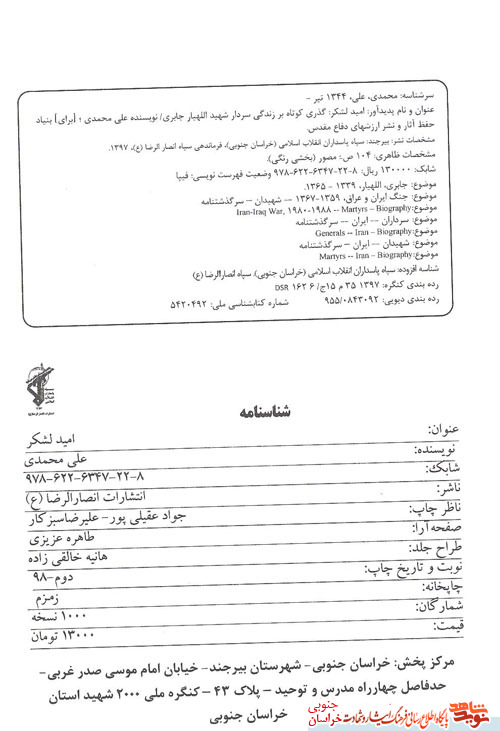 سرشناسه: محمدی، علی، ۱۳۴۴ تیر -
عنوان و نام پدیدآور: امید لشکر: گذری کوتاه بر زندگی سردار شهید اللهیار جابری/ نویسنده علی محمدی ؛ [برای] بنیاد
حفظ آثار و نشر ارزشهای دفاع مقدس.
مشخصات نشر: بیرجند: سپاه پاسداران انقلاب اسلامی (خراسان جنوبی)، فرماندهی سپاه انصار الرضا (ع)، ۱۳۹۷.
مشخصات ظاهری: ۱۰۴ ص: مصور (بخشی رنگی).
شابک: ۱۳۰۰۰۰ ریال: ۸-۲۲-۶۳۴۷-۶۲۲-۹۷۸ وضعیت فهرست نویسی: فیپا
موضوع: جابری، اللهیار، ۱۳۳۹ - ۱۳۶۵.
موضوع: جنگ ایران و عراق، ۱۳۵۹-۱۳۶۷ -- شهیدان -- سرگذشتنامه
موضوع: Iran-Iraq War, ۱۹۸۰-۱۹۸۸ -- Martyrs -- Biography
موضوع: سرداران -- ایران -- سرگذشتنامه
موضوع: Generals -- Iran -- Biography
موضوع: شهیدان -- ایران -- سرگذشتنامه
موضوع: Martyrs -- Iran -- Biography
شناسه افزوده: سپاه پاسداران انقلاب اسلامی (خراسان جنوبی). سپاه انصار الرضا (ع)
رده بندی کنگره: ۱۳۹۷ ۳۵ م ۱۵ج/ ۶ ۱۶۲ DSR
رده بندی دیویی: ۹۵۵/۰۸۴۳۰۹۲ شماره کتابشناسی ملی: ۵۴۲۰۴۹۲
شناسنامه
عنوان: امید لشکر
نویسنده: علی محمدی
شابک: ۸-۲۲-۶۳۴۷-۶۲۲-۹۷۸
ناشر: انتشارات انصارالرضا (ع)
ناظر چاپ: جواد عقیلی پور- علیرضا سبزکار
صفحه آرا: طاهره عزیزی
طراح جلد: هانیه خالقی زاده
نوبت و تاریخ چاپ: دوم-۹۸
چاپخانه: زمزم
شمارگان: ۱۰۰۰ نسخه
قیمت: ۱۳۰۰۰ تومان
مرکز پخش: خراسان جنوبی- شهرستان بیرجند- خیابان امام موسی صدر غربی-
حدفاصل چهارراه مدرس و توحید - پلاک ۴۳ - کنگره ملی ۲۰۰۰ شهید استان
خراسان جنوبی
نوید شاهد
پایگاه اطلاع رسانی فرهنگ ایثار و شهادت
خراسان جنوبی